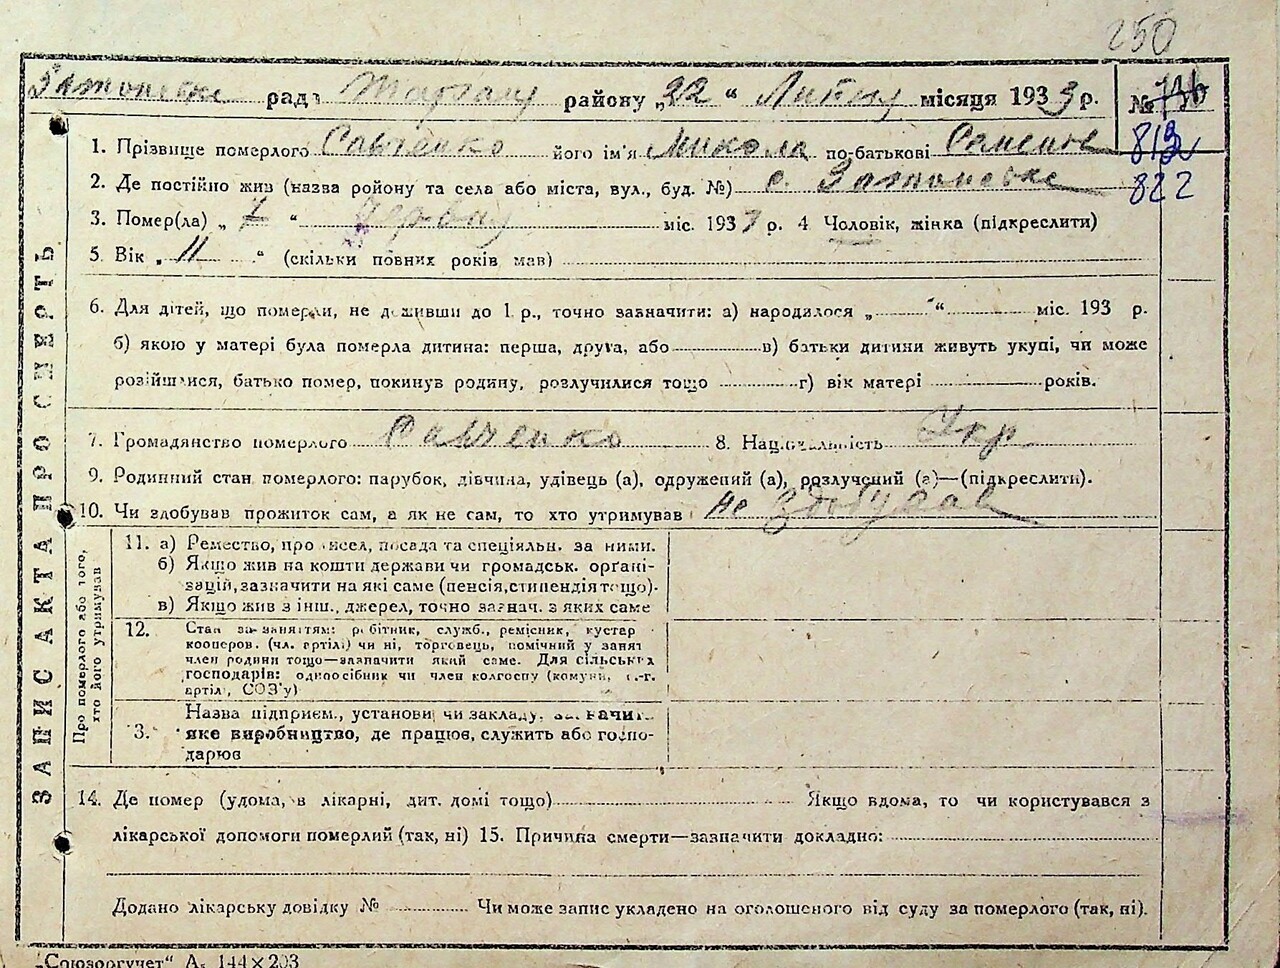 250
Затонське рада району „22“ Липня місяця 1933 р. № 736
813
822
1. Прізвище померлого Савченко його ім'я Микола по-батькові Семенов
2. Де постійно жив (назва ройону та села або міста, вул., буд. №) с. Затонське
3. Помер(ла) „7“ Червня міс. 1933 р. 4 Чоловік, жінка (підкреслити)
5. Вік „11“ (скільки повних років мав)
6. Для дітей, що померли, не доживши до 1 р., точно зазначити: а) народилося „ “ міс. 193 р.
б) якою у матері була померла дитина: перша, друга, або в) батьки дитини живуть укупі, чи може
розійшлися, батько помер, покинув родину, розлучилися тощо г) вік матері років.
7. Громадянство померлого Савченко 8. Національність Укр
9. Родинний стан померлого: парубок, дівчина, удівець (а), одружений (а), розлучений (а)—(підкреслити).
10. Чи здобував прожиток сам, а як не сам, то хто утримував не здобував
11. а) Ремество, професія, посада та спеціяльн. за ними.
б) Якщо жив на кошти держави чи громадськ. орґані-
зацій, зазначити на які саме (пенсія, стипендія тощо).
в) Якщо жив з інш., джерел, точно зазнач. з яких саме
12. Стан за заняттям: робітник, служб., ремісник, кустар
кооперов. (чл. артілі) чи ні, торговець, помічний у занят
член родини тощо—зазначити який саме. Для сільських
господарів: одноосібник чи член колгоспу (комуни, с.-г.
артілі, СОЗ'у)
Назва підприєм., установи чи закладу, зазначити
3. яке виробництво, де працює, служить або госпо-
дарює
Про померлого або того, хто його утримував
14. Де помер (удома, в лікарні, дит. домі тощо) Якщо вдома, то чи користувався з
лікарської допомоги померлий (так, ні) 15. Причина смерти—зазначити докладно:
Додано лікарську довідку № Чи може запис укладено на оголошеного від суду за померлого (так, ні).
ЗАПИС АКТА ПРО СМЕРТЬ
„Союзоргучет“ А. 144×203